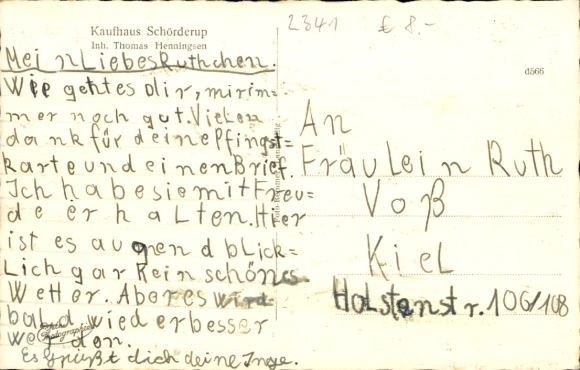 2341 € 8.-
Kaufhaus Schörderup
Inh. Thomas Henningsen
d566
Mein Liebes Ruthchen.
Wie geht es dir, mir im=
mer noch gut. Vielen
dank für deine Pfingst=
karte und einen Brief.
Ich habe sie mit Freu=
de erhalten. Hier
ist es augendblick=
lich gar kein schönes
Wetter. Aber es wird
bald wieder besser
werden.
Es grüßt dich deine Inge.
An
Fräulein Ruth
Voß
Kiel
Holstenstr. 106/108